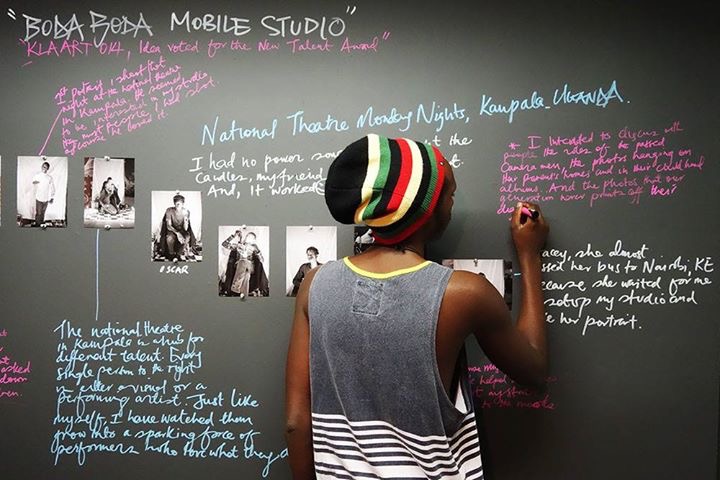 "BODA BODA MOBILE STUDIO"
"KLAART 014, Idea voted for the New Talent Award"
1st portrait I shot that
night at the national theatre
in Kampala. He seemed
to be interested in my studio
than most people I had shot.
of course he loved it.
National Theatre Monday Nights, Kampala UGANDA.
I had no power the
candles, my friend
And, it worked
* I intended to discuss with
people the roles of the passed
Camera men, the photos hanging on
their parent's homes and in their childhood
albums. And the photos that our
generation never prints off their
OSCAR
acey, she almost
ssed her bus to Nairobi, KE
ecause she waited for me
setup my studio and
e her portrait.
The national theatre
in Kampala is a hub for
different talent. Every
single person to the right
is either a visual or a
performing artist. Just like
myself, I have watched them
grow into a sparking force of
performers who love what they d
asked
helped
to the